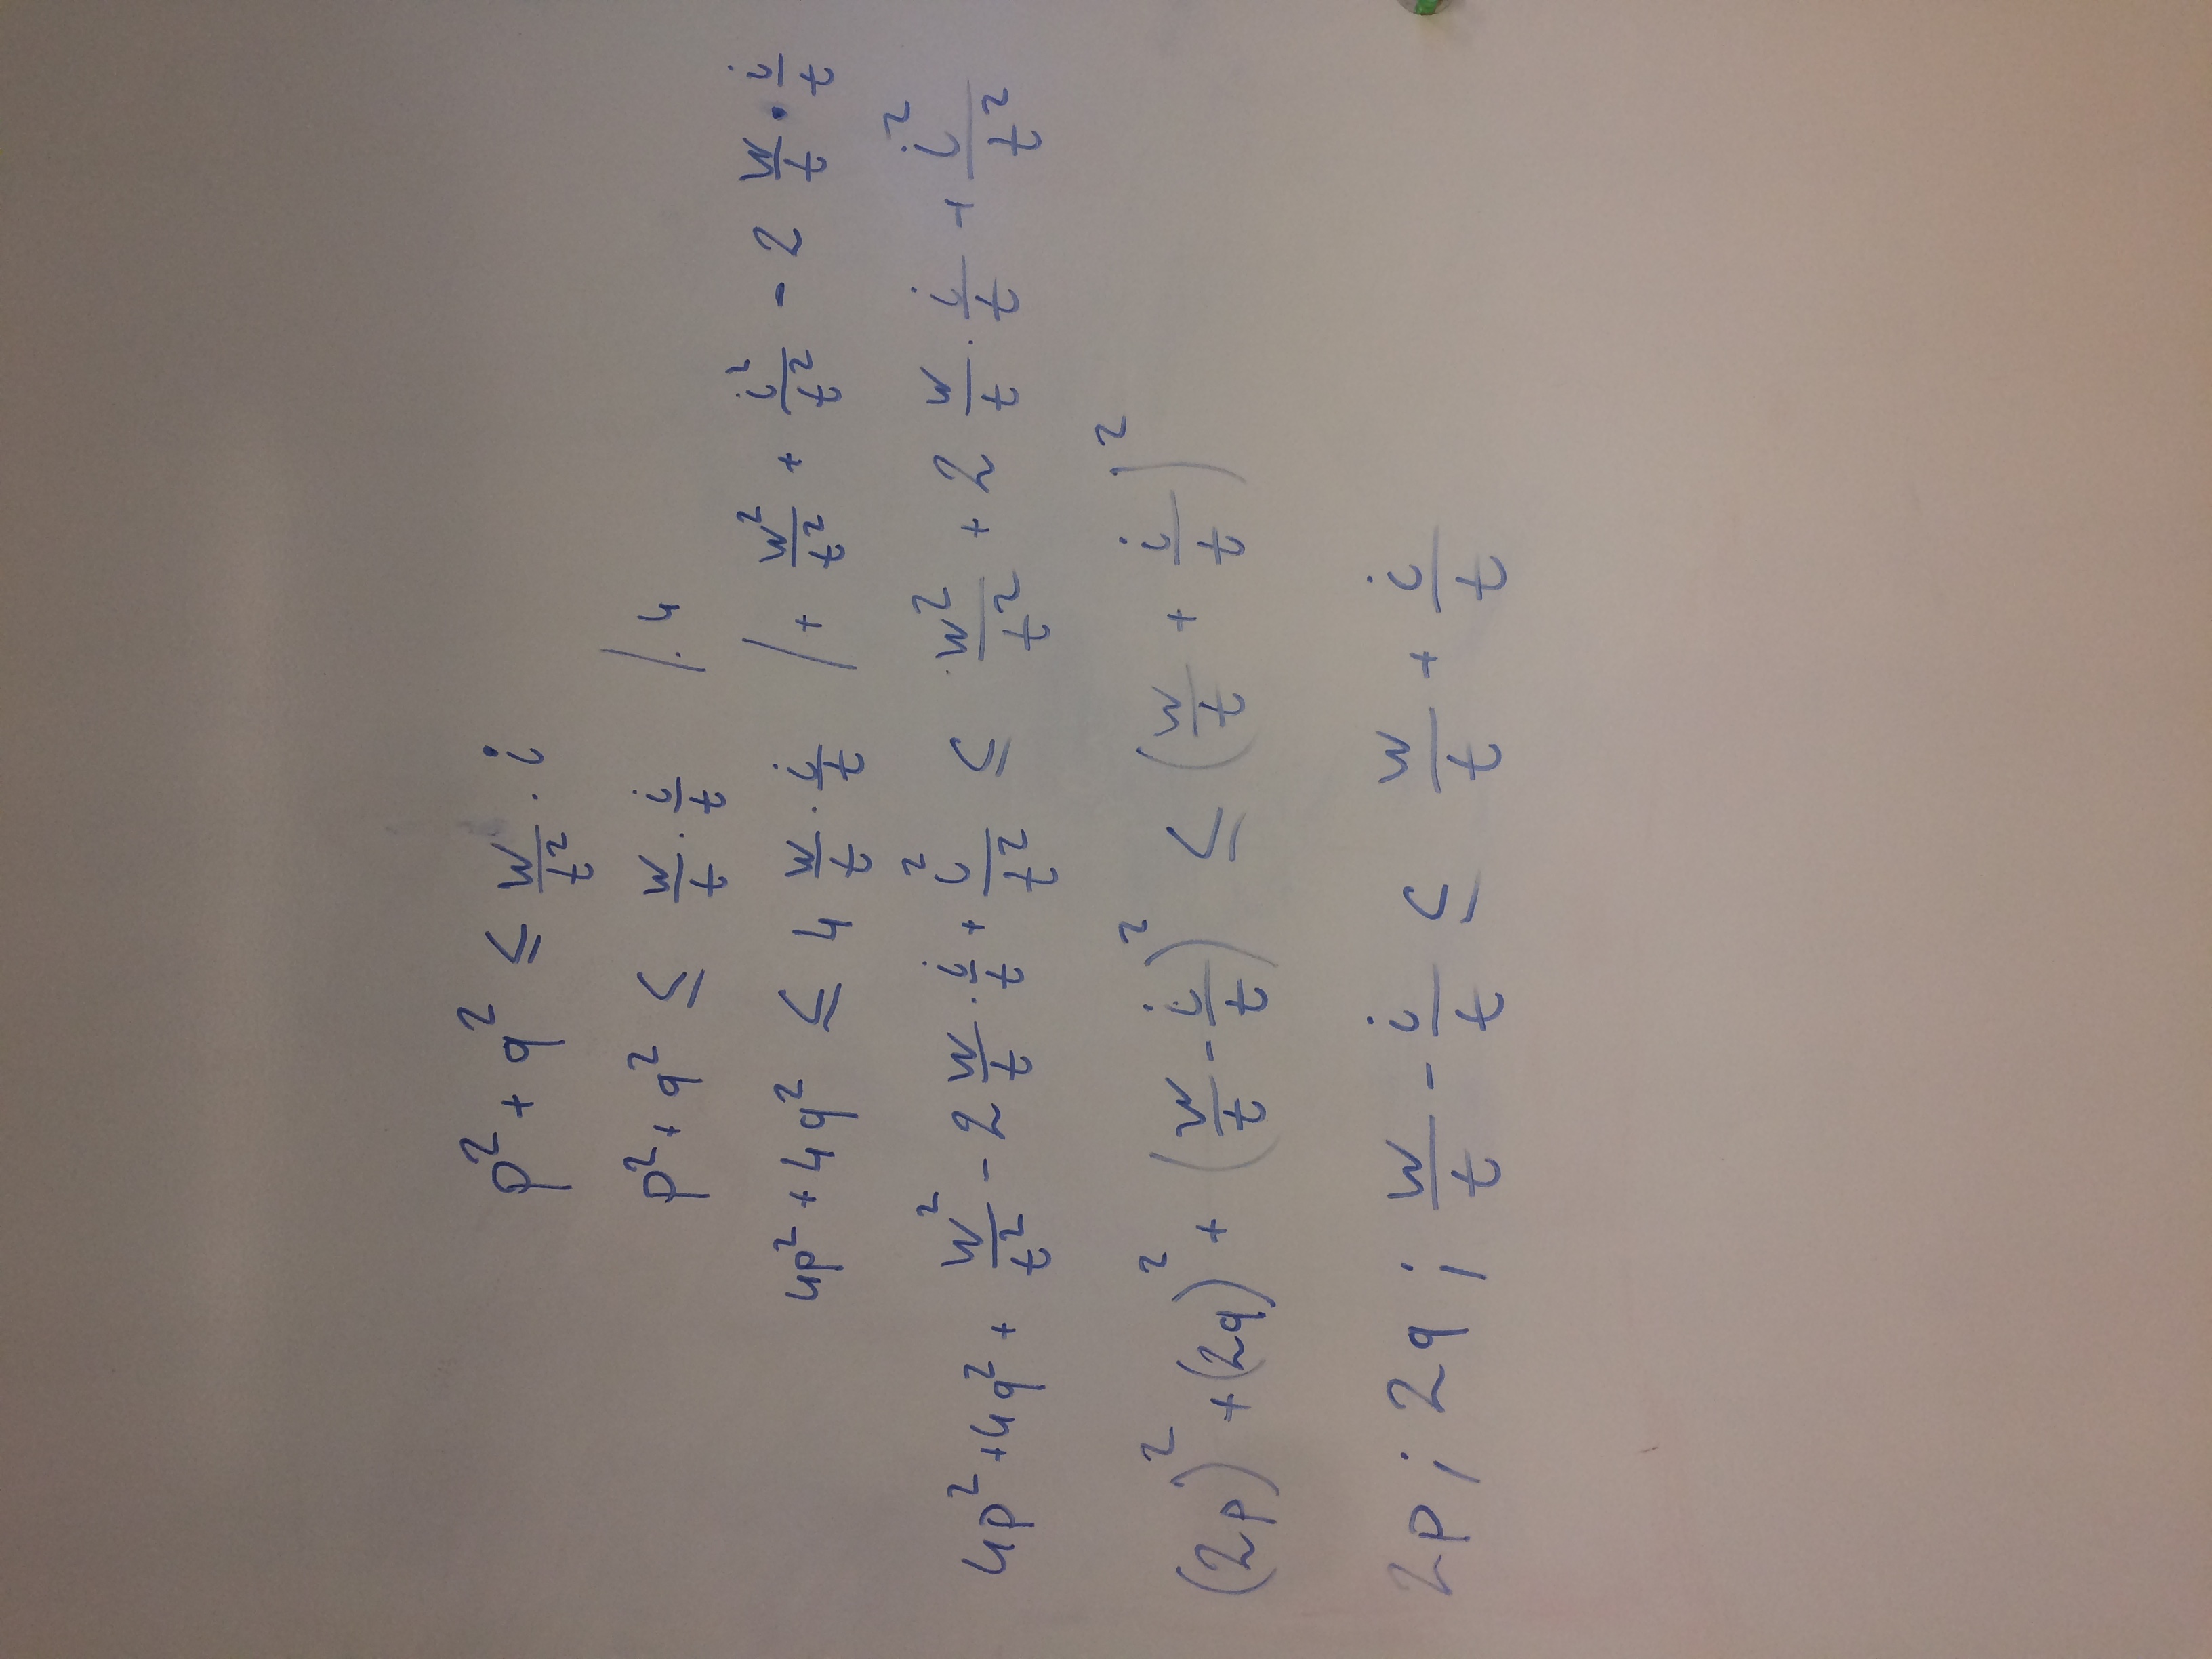 p² + q² ≤ n/t² · i
p² + q² ≤ n/t · i/t /·4
4p² + 4q² ≤ 4 n/t · i/t / + n²/t² + i²/t² - 2 n/t · i/t
4p² + 4q² + n²/t² - 2 n/t · i/t + i²/t² ≤ n²/t² + 2 n/t · i/t + i²/t²
(2p)² + (2q)² + (n/t - i/t)² ≤ (n/t + i/t)²
2p ; 2q ; n/t - i/t ≤ n/t + i/t